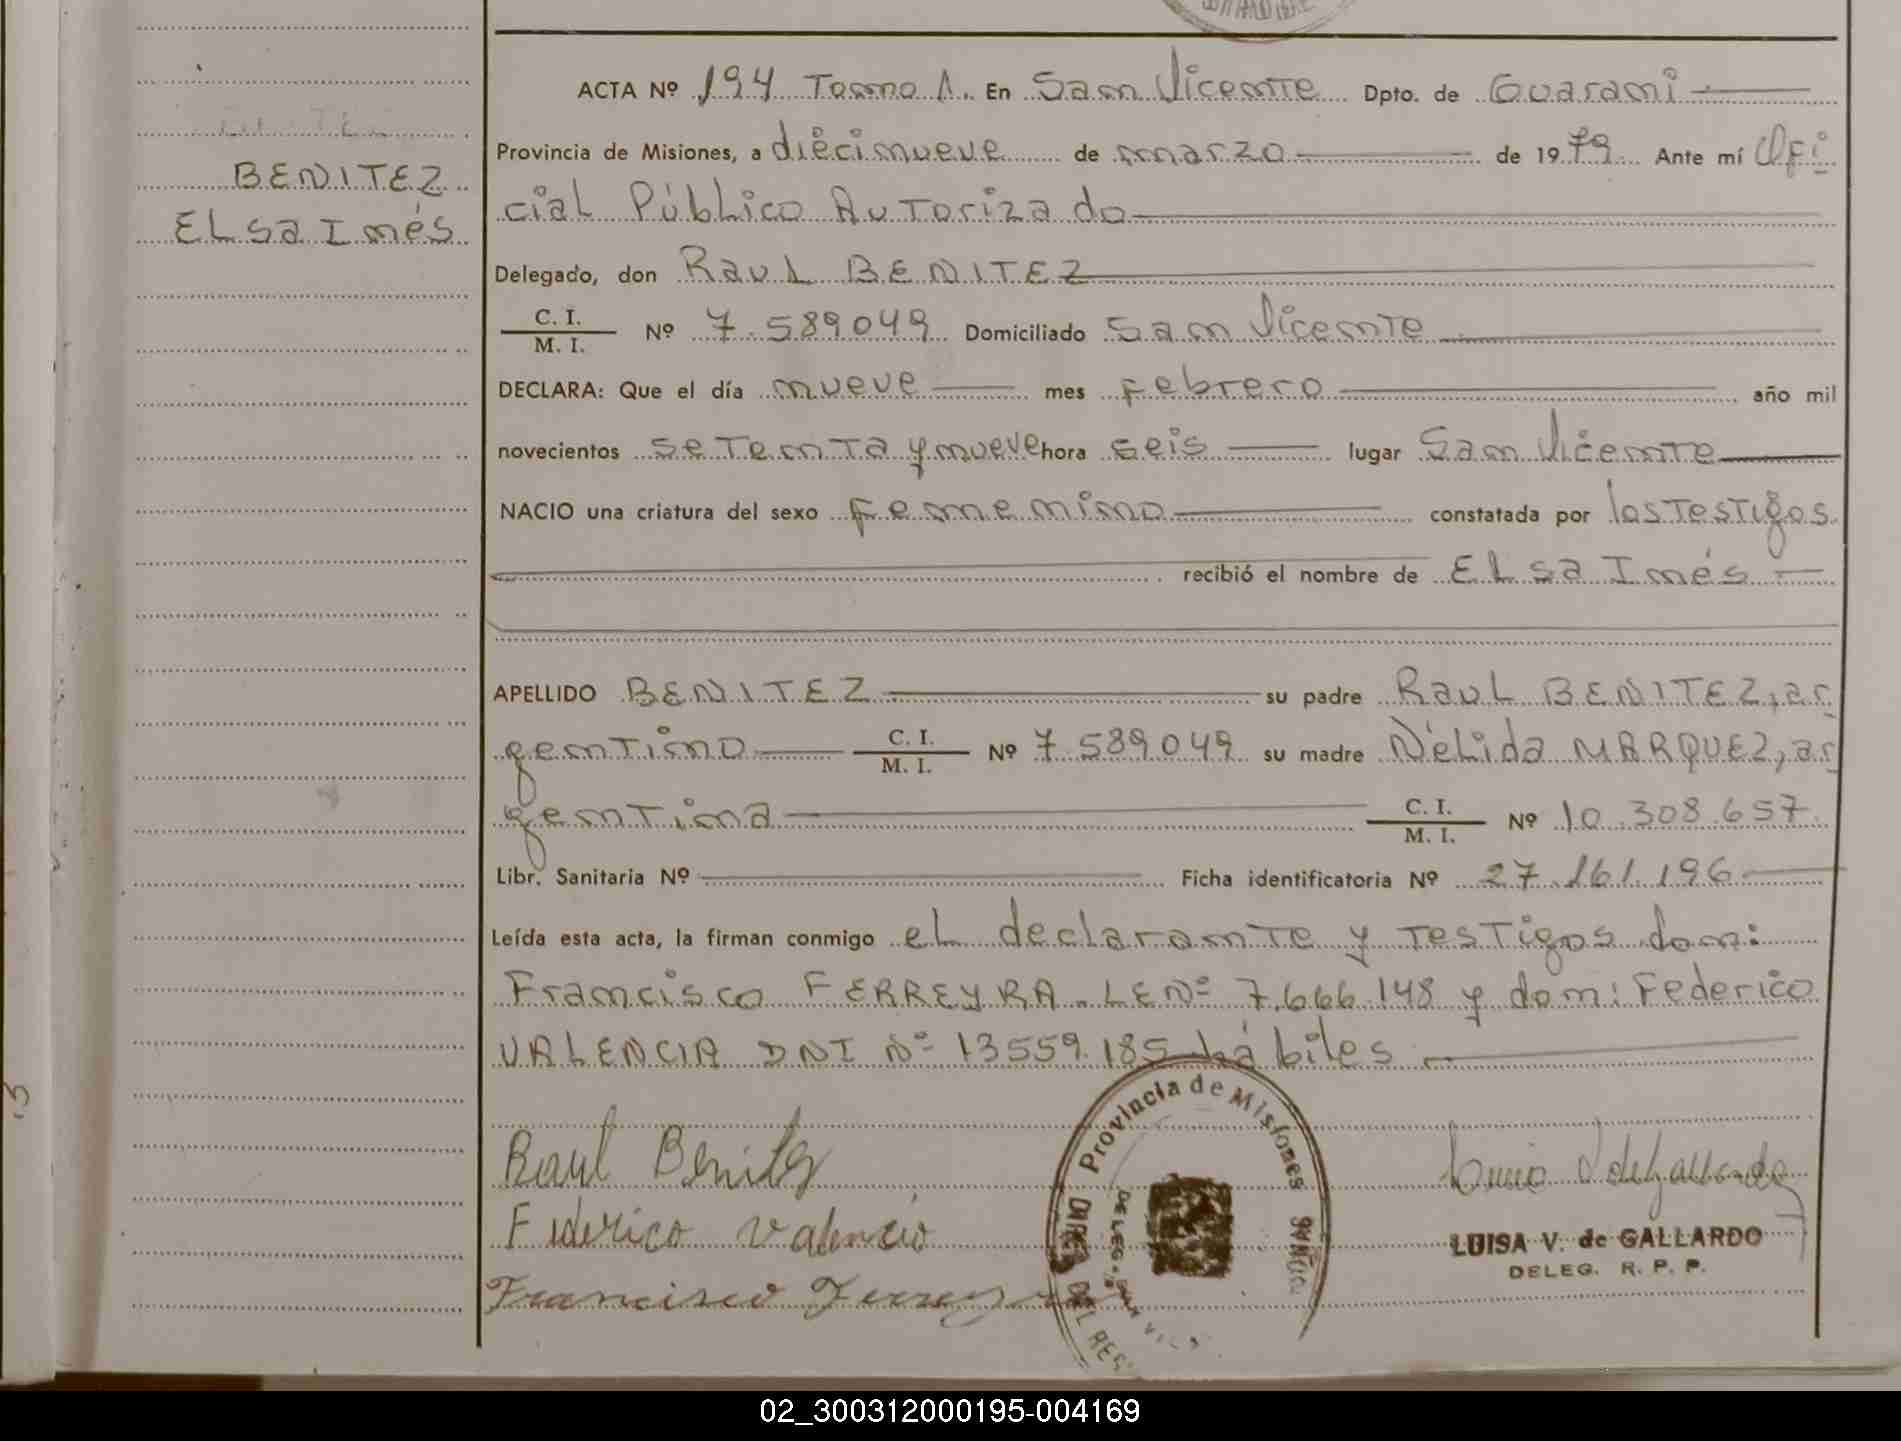 BENITEZ
ELsa Inés
ACTA Nº 194 Tomo 1. En San Vicente Dpto. de Guaraní
Provincia de Misiones, a diecinueve de marzo de 1979 Ante mí Ofi
cial Público Autorizado
Delegado, don Raul BENITEZ
C. I.
M. I. Nº 7.589.049 Domiciliado San Vicente
DECLARA: Que el día nueve mes febrero año mil
novecientos setenta y nueve hora seis lugar San Vicente
NACIO una criatura del sexo femenino constatada por los testigos
recibió el nombre de ELsa Inés
APELLIDO BENITEZ su padre Raul BENITEZ, ar
gentino C. I.
M. I. Nº 7.589.049 su madre Nélida MARQUEZ, ar
gentina C. I.
M. I. Nº 10.308.657
Libr. Sanitaria Nº Ficha identificatoria Nº 27.161.196
Leída esta acta, la firman conmigo el declarante y testigos don:
Francisco FERREYRA. LE Nº 7.666.148 y don: Federico
VALENCIA DNI Nº 13559.185 hábiles
Raul Benitez
Federico Valencio
Francisco Ferreyra
Provincia de Misiones
LUISA V. de GALLARDO
DELEG. R. P. P.
02_300312000195-004169